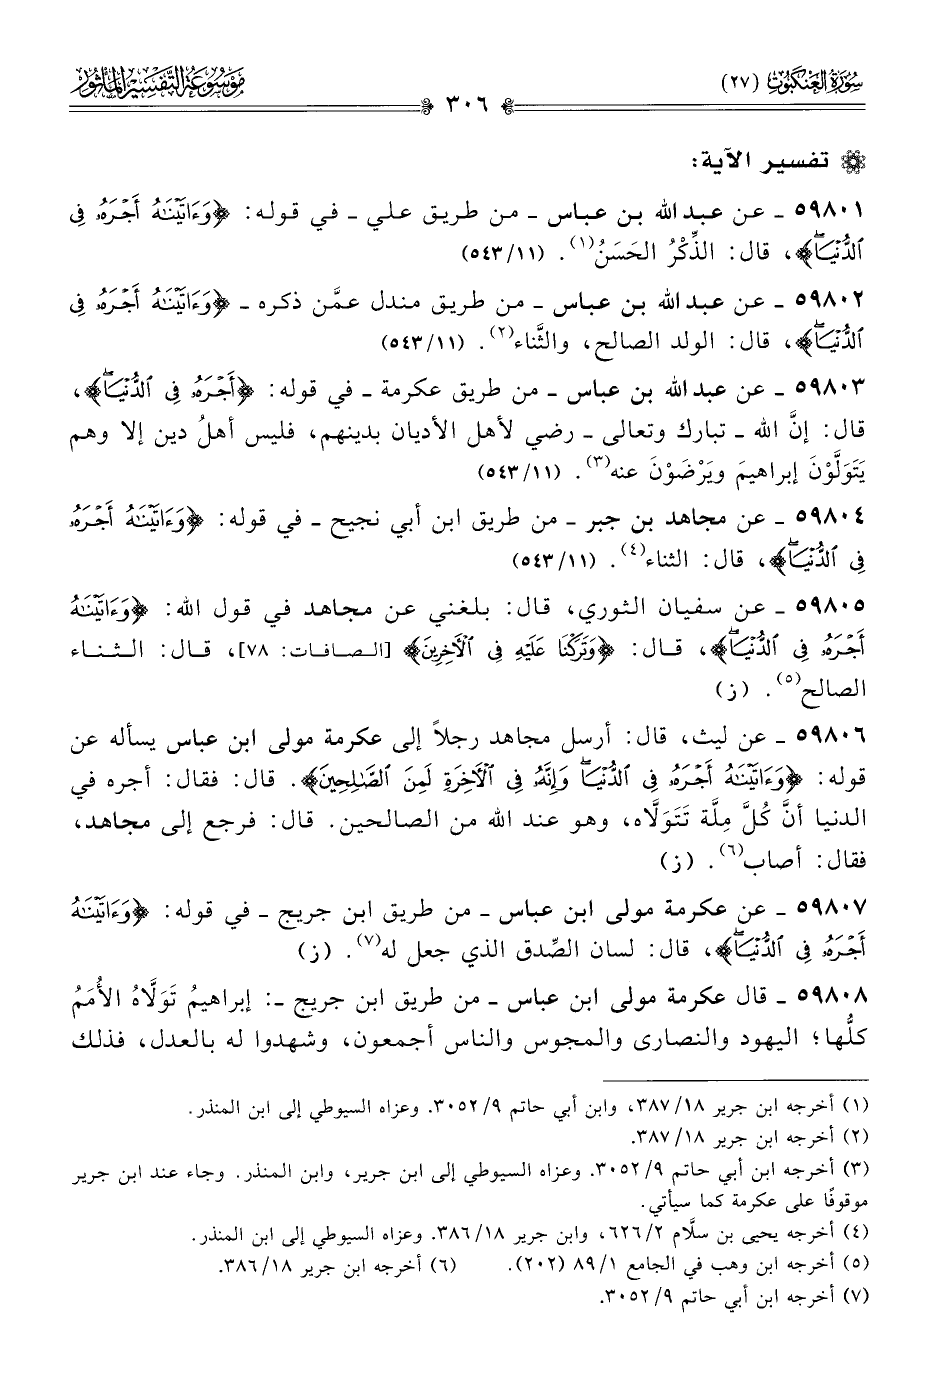 سُورَةُ العَنْكَبُوت (٢٧)
مَوْسُوعَةُ التَّفْسِيرِ المَأْثُور
٣٠٦
تفسير الآية:
٥٩٨٠١ ـ عن عبد الله بن عباس ـ من طريق علي ـ في قوله: ﴿وَءَاتَيْنَٰهُ أَجْرَهُۥ فِى
ٱلدُّنْيَاۖ﴾، قال: الذِّكْرُ الحَسَنُ(١). (١١/٥٤٣)
٥٩٨٠٢ ـ عن عبد الله بن عباس ـ من طريق مندل عمَّن ذكره ـ ﴿وَءَاتَيْنَٰهُ أَجْرَهُۥ فِى
ٱلدُّنْيَاۖ﴾، قال: الولد الصالح، والثَّناء(٢). (١١/٥٤٣)
٥٩٨٠٣ ـ عن عبد الله بن عباس ـ من طريق عكرمة ـ في قوله: ﴿أَجْرَهُۥ فِى ٱلدُّنْيَاۖ﴾،
قال: إنَّ الله ـ تبارك وتعالى ـ رضي لأهل الأديان بدينهم، فليس أهلُ دين إلا وهم
يَتَوَلَّوْنَ إبراهيمَ ويَرْضَوْنَ عنه(٣). (١١/٥٤٣)
٥٩٨٠٤ ـ عن مجاهد بن جبر ـ من طريق ابن أبي نجيح ـ في قوله: ﴿وَءَاتَيْنَٰهُ أَجْرَهُۥ
فِى ٱلدُّنْيَاۖ﴾، قال: الثناء(٤). (١١/٥٤٣)
٥٩٨٠٥ ـ عن سفيان الثوري، قال: بلغني عن مجاهد في قول الله: ﴿وَءَاتَيْنَٰهُ
أَجْرَهُۥ فِى ٱلدُّنْيَاۖ﴾، قال: ﴿وَتَرَكْنَا عَلَيْهِ فِى ٱلْأَخِرِينَ﴾ [الصافات: ٧٨]، قال: الثناء
الصالح(٥). (ز)
٥٩٨٠٦ ـ عن ليث، قال: أرسل مجاهد رجلاً إلى عكرمة مولى ابن عباس يسأله عن
قوله: ﴿وَءَاتَيْنَٰهُ أَجْرَهُۥ فِى ٱلدُّنْيَاۖ وَإِنَّهُۥ فِى ٱلْأَخِرَةِ لَمِنَ ٱلصَّٰلِحِينَ﴾. قال: فقال: أجره في
الدنيا أنَّ كُلَّ مِلَّة تَتَولَّاه، وهو عند الله من الصالحين. قال: فرجع إلى مجاهد،
فقال: أصاب(٦). (ز)
٥٩٨٠٧ ـ عن عكرمة مولى ابن عباس ـ من طريق ابن جريج ـ في قوله: ﴿وَءَاتَيْنَٰهُ
أَجْرَهُۥ فِى ٱلدُّنْيَاۖ﴾، قال: لسان الصِّدق الذي جعل له(٧). (ز)
٥٩٨٠٨ ـ قال عكرمة مولى ابن عباس ـ من طريق ابن جريج ـ: إبراهيمُ تَوَلَّاهُ الأُمَمُ
كلُّها؛ اليهود والنصارى والمجوس والناس أجمعون، وشهدوا له بالعدل، فذلك
(١) أخرجه ابن جرير ١٨/٣٨٧، وابن أبي حاتم ٩/٣٠٥٢. وعزاه السيوطي إلى ابن المنذر.
(٢) أخرجه ابن جرير ١٨/٣٨٧.
(٣) أخرجه ابن أبي حاتم ٩/٣٠٥٢. وعزاه السيوطي إلى ابن جرير، وابن المنذر. وجاء عند ابن جرير
موقوفًا على عكرمة كما سيأتي.
(٤) أخرجه يحيى بن سلَّام ٢/٦٢٦، وابن جرير ١٨/٣٨٦. وعزاه السيوطي إلى ابن المنذر.
(٥) أخرجه ابن وهب في الجامع ١/٨٩ (٢٠٢). (٦) أخرجه ابن جرير ١٨/٣٨٦.
(٧) أخرجه ابن أبي حاتم ٩/٣٠٥٢.